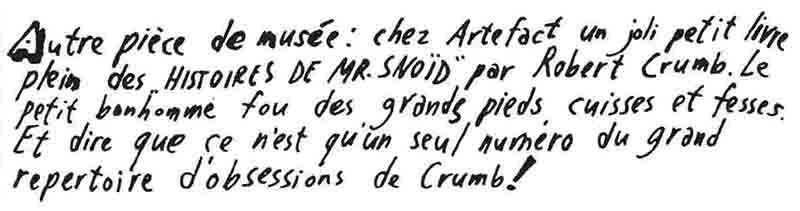 Autre pièce de musée: chez Artefact un joli petit livre
plein des "HISTOIRES DE MR. SNOÏD" par Robert Crumb. Le
petit bonhomme fou des grands pieds, cuisses et fesses.
Et dire que ce n'est qu'un seul numéro du grand
repertoire d'obsessions de Crumb!